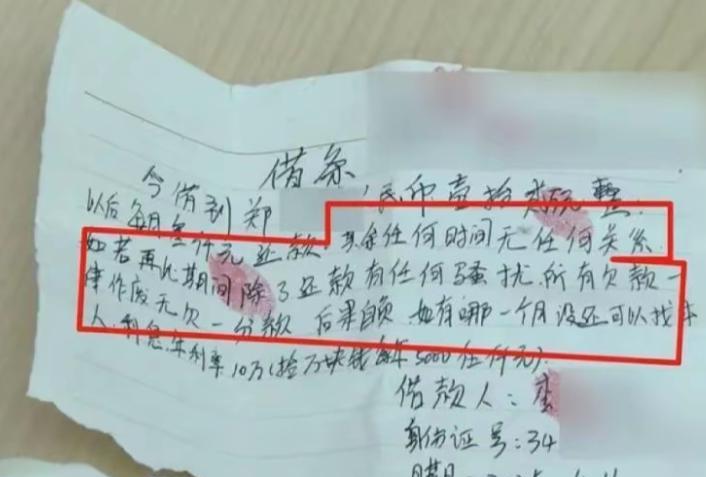 借条
今借到郑 民币壹拾 元整.
以后每月叁仟元还款,其余任何时间无任何关系
如若再此期间除了还款有任何骚扰.所有欠款一
律作废无欠一分款 后果自负.如有哪一个月没还可以找本
人.利息.年利率10万(拾万块钱每年5000伍仟元).
借款人:李
身份证号:34